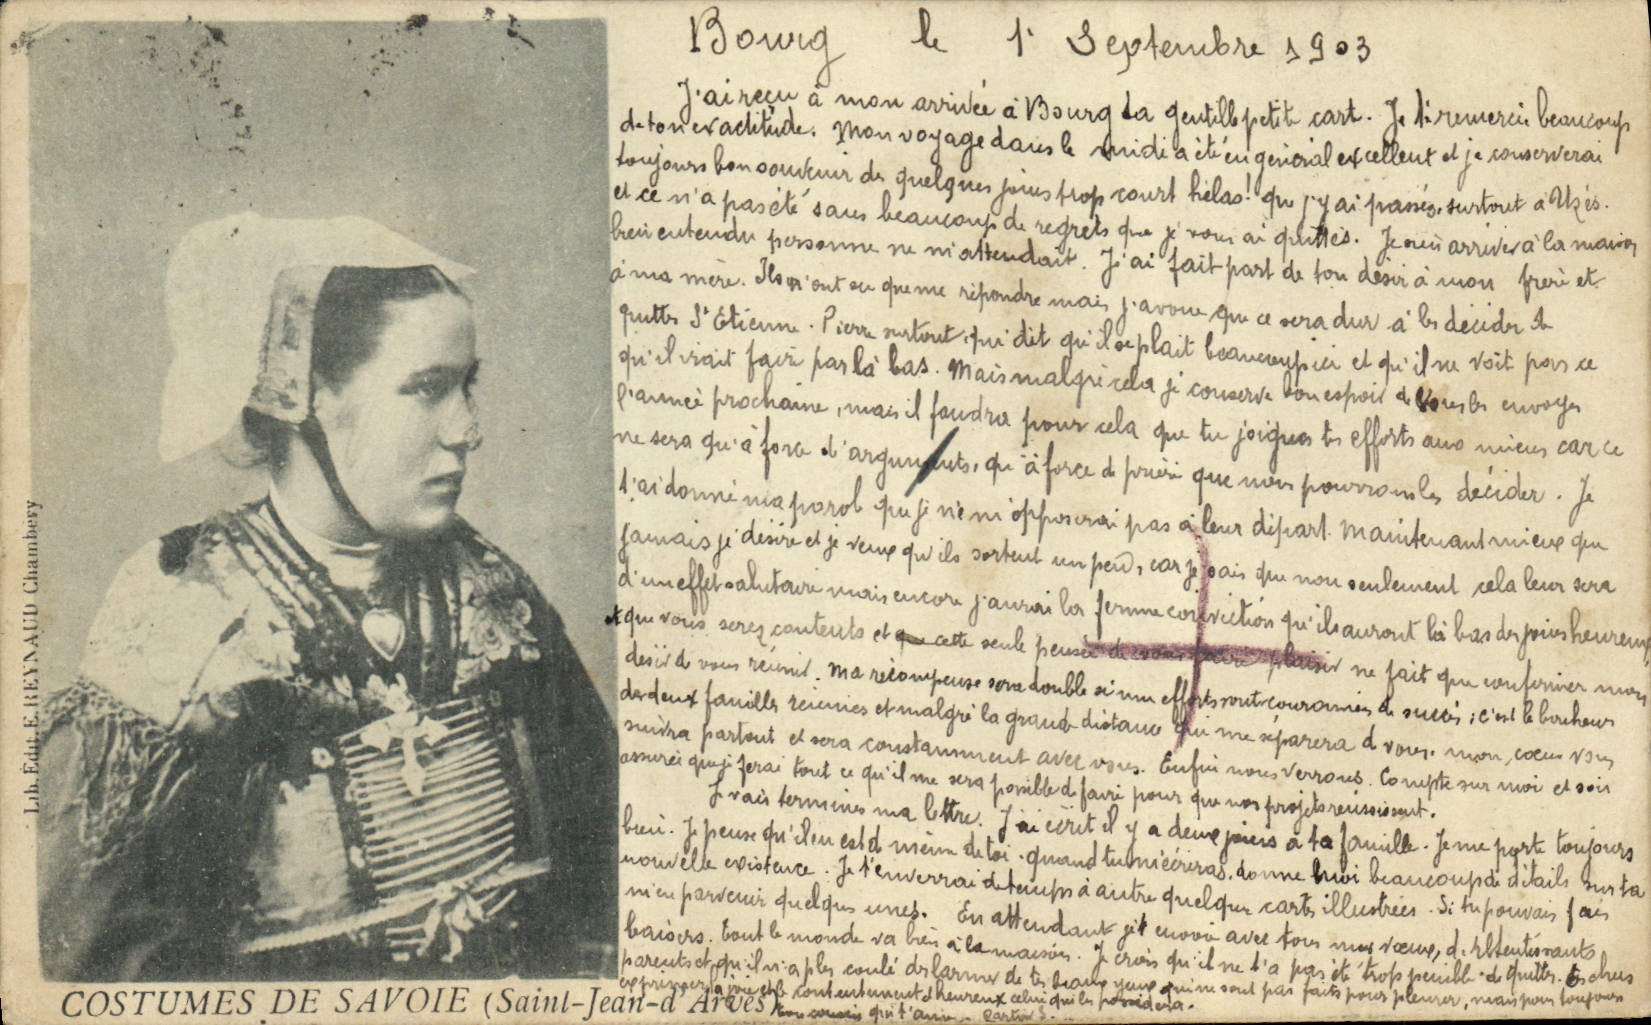 Bourg le 1r Septembre 1903
J'ai reçu à mon arrivée à Bourg ta gentille petite cart. Je te remercie beaucoup
de ton exactitude. Mon voyage dans le midi a été en général excellent et je conserverai
toujours bon souvenir des quelques joies trop court hélas! que j'y ai passés, surtout à Uzès.
et ce n'a pas été sans beaucoup de regrets que je vous ai quittés. Je suis arriver à la maison
bien entendu personne ne m'attendait. J'ai fait part de ton désir à mon frère et
à ma mère. Ils n'ont su que me répondre mais j'avoue que ce sera dur à les décider de
quitter St Etienne. Pierre surtout, qui dit qu'il se plait beaucoup ici et qu'il ne voit pas ce
qu'il irait faire par là bas. Mais malgré cela je conserve bon espoir de vous les envoyer
l'année prochaine, mais il faudra pour cela que tu joignes tes efforts aux miens car ce
ne sera qu'à force d'arguments, qu'à force de prière que nous pourrons les décider. Je
t'ai donné ma parole que je ne m'opposerai pas à leur départ. Maintenant mieux que
jamais je désire et je veux qu'ils sortent un peu, car je sais que non seulement cela leur sera
d'un effet salutaire mais encore j'aurai la ferme conviction qu'ils auront là bas des joies heureuses
et que vous serez contents et cette seule pensée de vous faire plaisir ne fait que confirmer mon
désir de vous réunir. Ma récompense sera double si mes efforts sont couronnés de succès; c'est le bonheur
de deux famille réunies et malgré la grande distance qui me séparera de vous, mon coeur vous
suivra partout et sera constamment avec vous. Enfin nous verrons. Compte sur moi et sois
assurée que je ferai tout ce qu'il me sera possible de faire pour que nos projets réussissent.
Je vais terminer ma lettre. J'ai écrit il y a deux jours à ta famille. Je me porte toujours
bien. Je pense qu'il en est de même de toi. quand tu m'écriras, donne moi beaucoup de détails sur ta
nouvelle existence. Je t'enverrai de temps à autre quelques cartes illustrées. Si tu pouvais fais
m'en parvenir quelques unes. En attendant je t'envoie avec tous mes voeux, de retentissants
baisers. tout le monde va bien à la maison. Je crois qu'il ne t'a pas été trop pénible de quitter tes chers
parents et qu'il n'a plus coulé des larmes de tes beaux yeux qui ne sont pas faits pour pleurer, mais pour toujours
exprimer la joie et le contentement d'heureux celui qui les possédera.
ton cousin qui t'aime.
COSTUMES DE SAVOIE (Saint-Jean-d'Arves)
Lib. Edit. E. REYNAUD Chambéry